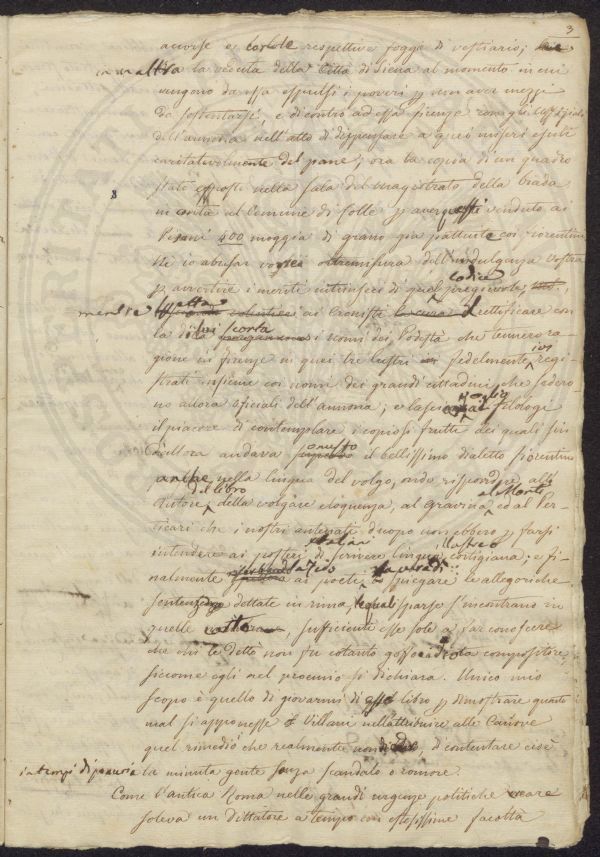 3
accorse e le loro respettive foggie di vestiario;
in un altra la veduta della Città di Siena al momento in cui
vengono da essa espulsi i poveri p non aver mezzi
da sostentarsi, e di contro ad essa Firenze con gli Ufiziali
dell'annona nell'atto di dispensare a quei miseri esuli
caritativolmente del pane; ora la copia di un quadro
stato esposto nella Sala del magistrato della biada
in onta al Comune di Colle p aver questi venduto ai
Pisani 400 moggia di grano già pattuite coi fiorentini
Nè io abuserò oltremisura dell'indulgenza vostra
p avvertire i meriti intrinseci di quel pregievole codice,
mentre ai Cronisti il rettificare con
la di lui scorta i nomi dei Podestà che tennero ra
gione in firenze in quei tre lustri fedelmente ivi regi
strati insieme coi nomi dei grandi cittadini che sedero
no allora ofiziali dell'annona; e lascio ai filologi
il piacere di contemplare i copiosi frutti dei quali fin
d'allora andava onusto il bellissimo dialetto fiorentino
anche nella lingua del volgo, onde rispondere all'
Autore del libro della volgare eloquenza, al Gravina, al Monti ed al Per
ticari che i nostri antenati d'uopo non ebbero p farsi
intendere ai posteri di scrivere lingua italiana illustre cortigiana; e fi
nalmente ai poeti lo spiegare le allegoriche
sentenze dettate in rima, le quali sparse s'incontrano in
quelle carte, sufficienti esse sole a far conoscere
che chi le dettò non fu cotanto gosso idiota compositore,
siccome egli nel proemio si dichiara. Unico mio
scopo è quello di giovarmi di esso libro p dimostrare quanto
mal si apponesse il Villani nell'attribuire alle Canove
quel rimedio che realmente non diedero, di contentare cioè
in tempi di penuria la minuta gente senza scandalo o romore.
Come l'antica Roma nelle grandi urgenze politiche creare
soleva un dittatore a tempo con estesissime facoltà